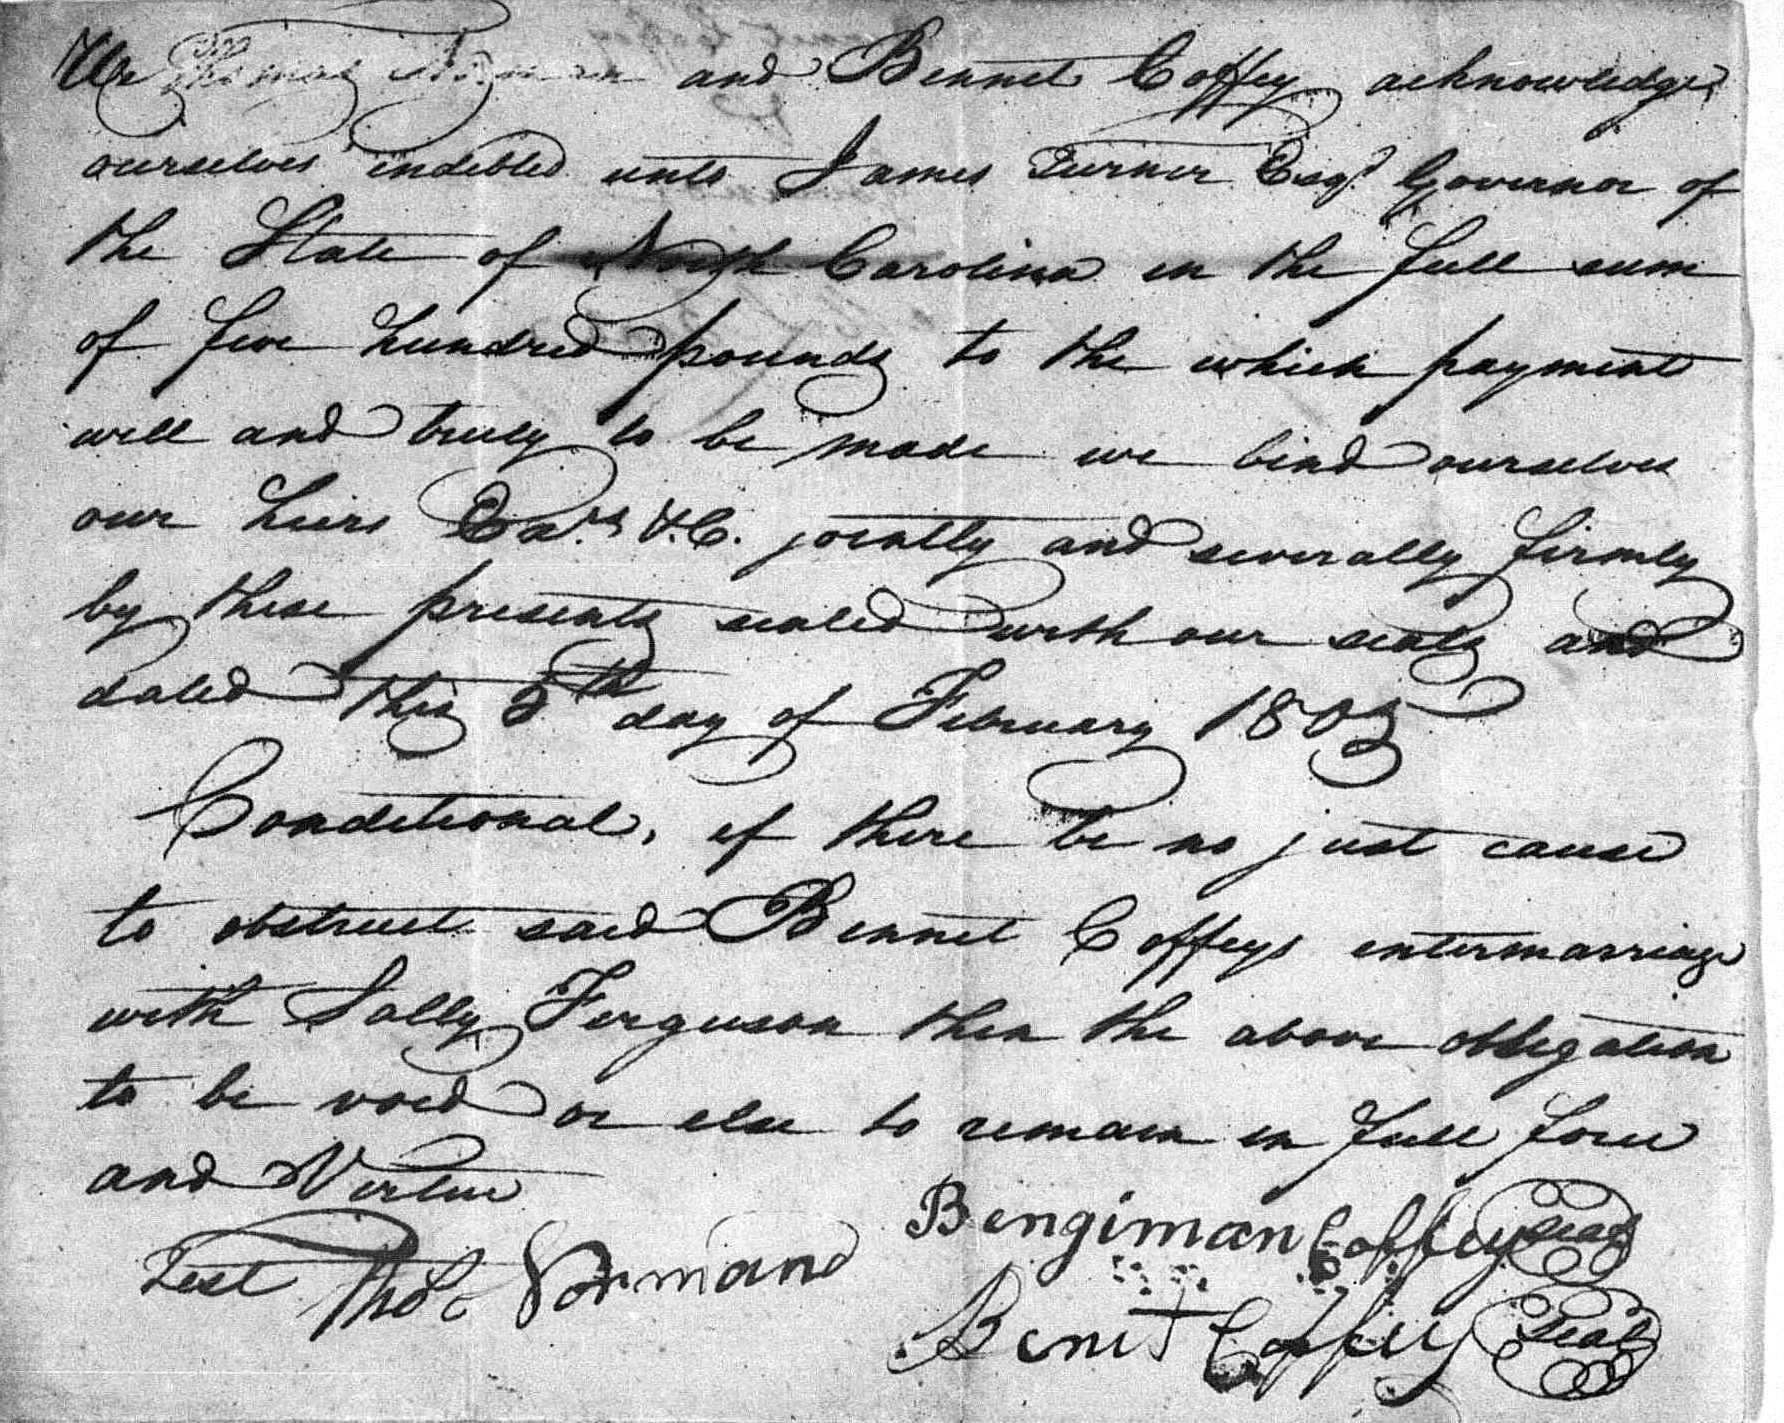 We Thomas Norman and Bennet Coffey acknowledge
ourselves indebted unto James Turner Esqr Governor of
the State of North Carolina in the full sum
of five hundred pounds to the which payment
well and truly to be made we bind ourselves
our heirs Exrs &C. jointly and severally firmly
by these presents sealed with our seals and
dated this 5th day of February 1803
Conditional, if there be no just cause
to obstruct said Bennet Coffeys intermarriage
with Sally Ferguson then the above obligation
to be void or else to remain in full force
and Virtue
Bengiman Coffey Seal
Test Thos Normand
Benit Coffey Seal